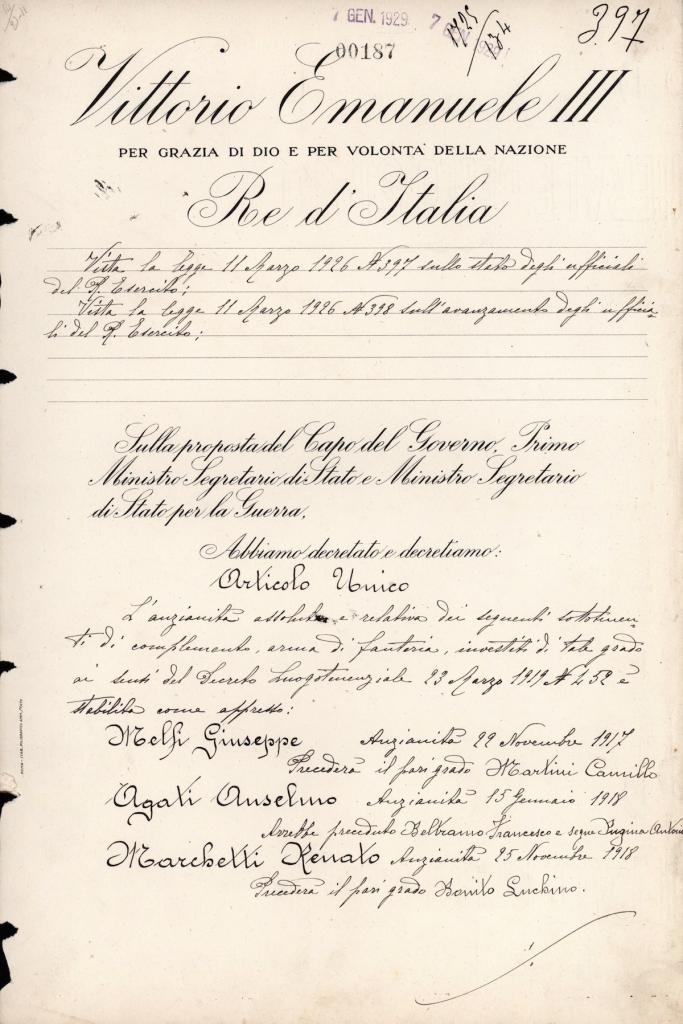 7 GEN. 1929
397
00187
Vittorio Emanuele III
PER GRAZIA DI DIO E PER VOLONTA' DELLA NAZIONE
Re d'Italia
Vista la legge 11 Marzo 1926 N 397 sullo stato degli ufficiali
del R. Esercito;
Vista la legge 11 Marzo 1926 N 398 sull'avanzamento degli ufficia-
li del R. Esercito;
Sulla proposta del Capo del Governo, Primo
Ministro Segretario di Stato e Ministro Segretario
di Stato per la Guerra.
Abbiamo decretato e decretiamo:
Articolo Unico
L'anzianità assoluta e relativa dei seguenti sottotenen-
ti di complemento, arma di fanteria, investiti di tale grado
ai sensi del Decreto Luogotenenziale 23 Marzo 1919 N 452 è
stabilita come appresso:
Melfi Giuseppe Anzianità 22 Novembre 1917
Precederà il pari grado Martini Camillo
Agati Anselmo Anzianità 15 Gennaio 1918
Avrebbe preceduto Beltramo Francesco e segue Pugina Antonio
Marchetti Renato Anzianità 25 Novembre 1918
Precederà il pari grado Bonito Luchino.